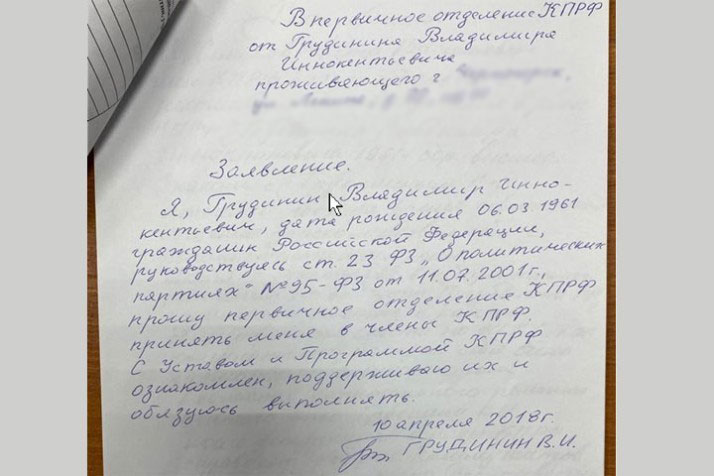 В первичное отделение КПРФ
от Грудинина Владимира
Иннокентьевича
проживающего г.
Заявление.
Я, Грудинин Владимир Инно-
кентьевич, дата рождения 06.03.1961
гражданин Российской Федерации,
руководствуясь ст. 23 ФЗ „О политических
партиях" №95-ФЗ от 11.07.2001г.,
прошу первичное отделение КПРФ
принять меня в члены КПРФ.
С Уставом и Программой КПРФ
ознакомлен, поддерживаю их и
обязуюсь выполнять.
10 апреля 2018г.
ГРУДИНИН В.И.